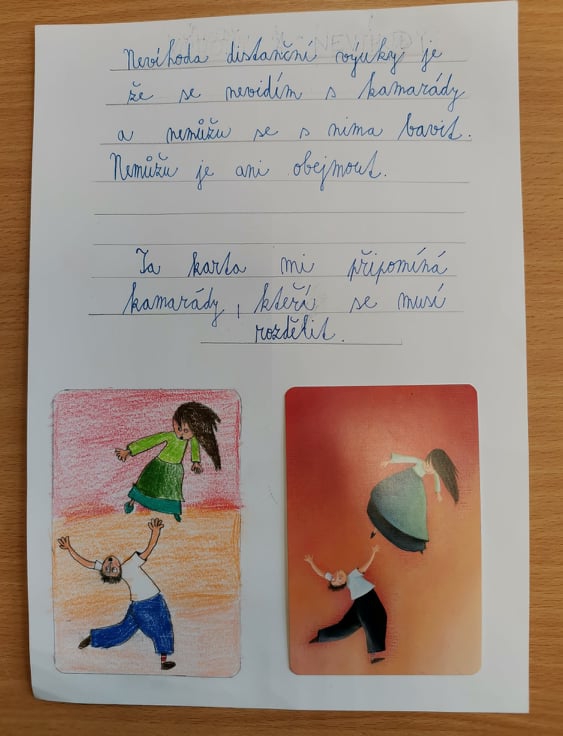 Nevíhoda distanční výuky je
že se nevidím s kamarády
a nemůžu se s nima bavit.
Nemůžu je ani obejmout.
Ta karta mi připomíná
kamarády, kteří se musí
rozdělit.